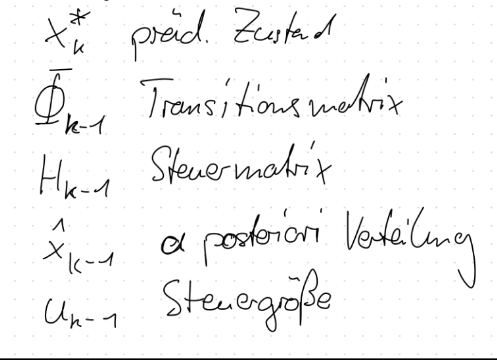 x*ₖ präd. Zustand
Φ̄ₖ₋₁ Transitionsmatrix
Hₖ₋₁ Steuermatrix
x̂ₖ₋₁ a posteriori Verteilung
uₖ₋₁ Steuergröße